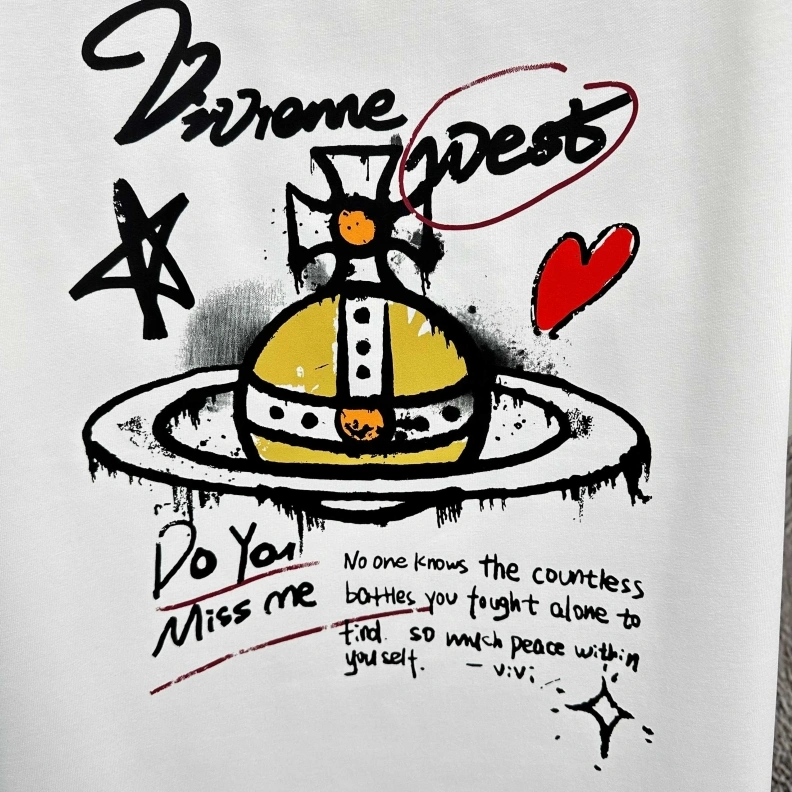 Vivienne West
Do You
Miss me
No one knows the countless
battles you fought alone to
find. so much peace within
youself. – vivi